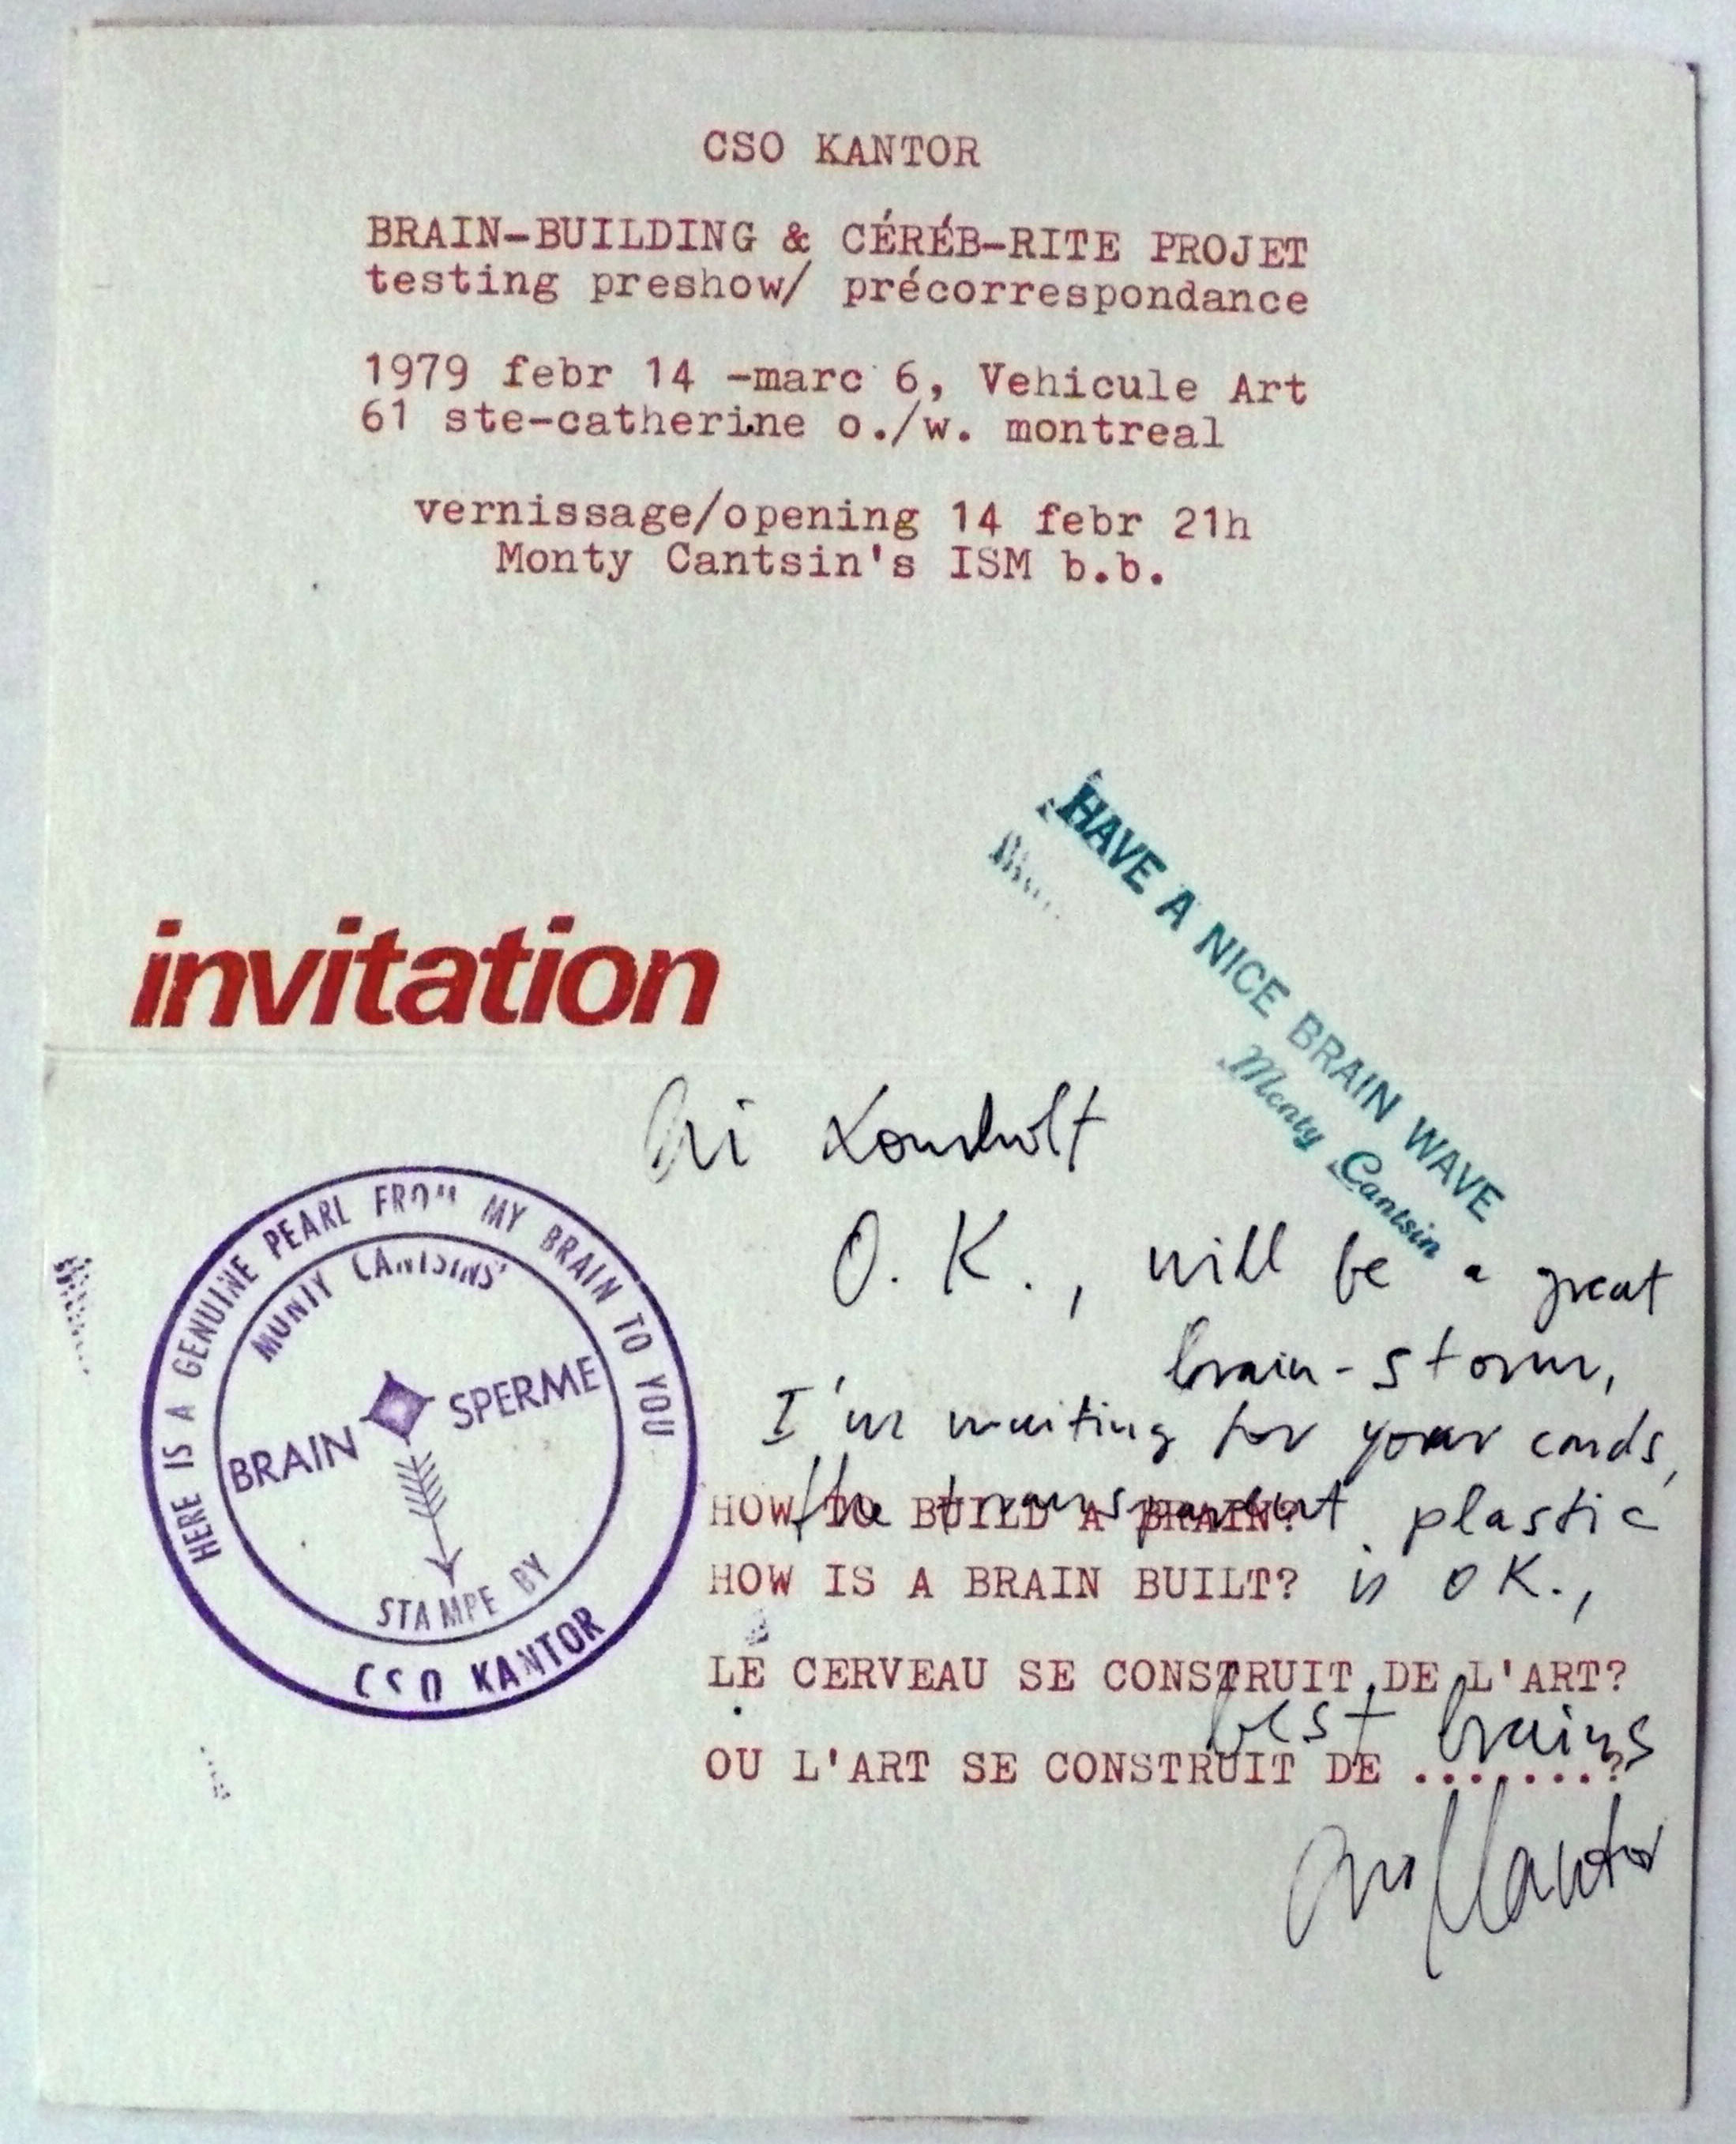 CSO KANTOR
BRAIN-BUILDING & CÉRÉB-RITE PROJET
testing preshow/ précorrespondance
1979 febr 14 -marc 6, Vehicule Art
61 ste-catherine o./w. montreal
vernissage/opening 14 febr 21h
Monty Cantsin's ISM b.b.
HAVE A NICE BRAIN WAVE
Monty Cantsin
invitation
Hi
O.K., will be a great
brain-storm,
I'm waiting for your cards,
the transparent plastic
is OK.,
best brains
Kantor
HERE IS A GENUINE PEARL FROM MY BRAIN TO YOU
MONTY CANTSINS'
BRAIN SPERME
STAMPE BY
CSO KANTOR
HOW TO BUILD A BRAIN?
HOW IS A BRAIN BUILT?
LE CERVEAU SE CONSTRUIT DE L'ART?
OU L'ART SE CONSTRUIT DE .......?